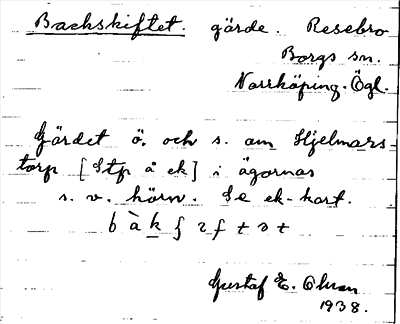 Backskiftet. gärde. Resebro
Borgs sn.
Norrköping. Ögl.
Gärdet ö. och s. om Hjelmars-
torp [Stp å ek] i ägornas
s. v. hörn. Se ek-kart.
Gustaf E. Ohran
1938.